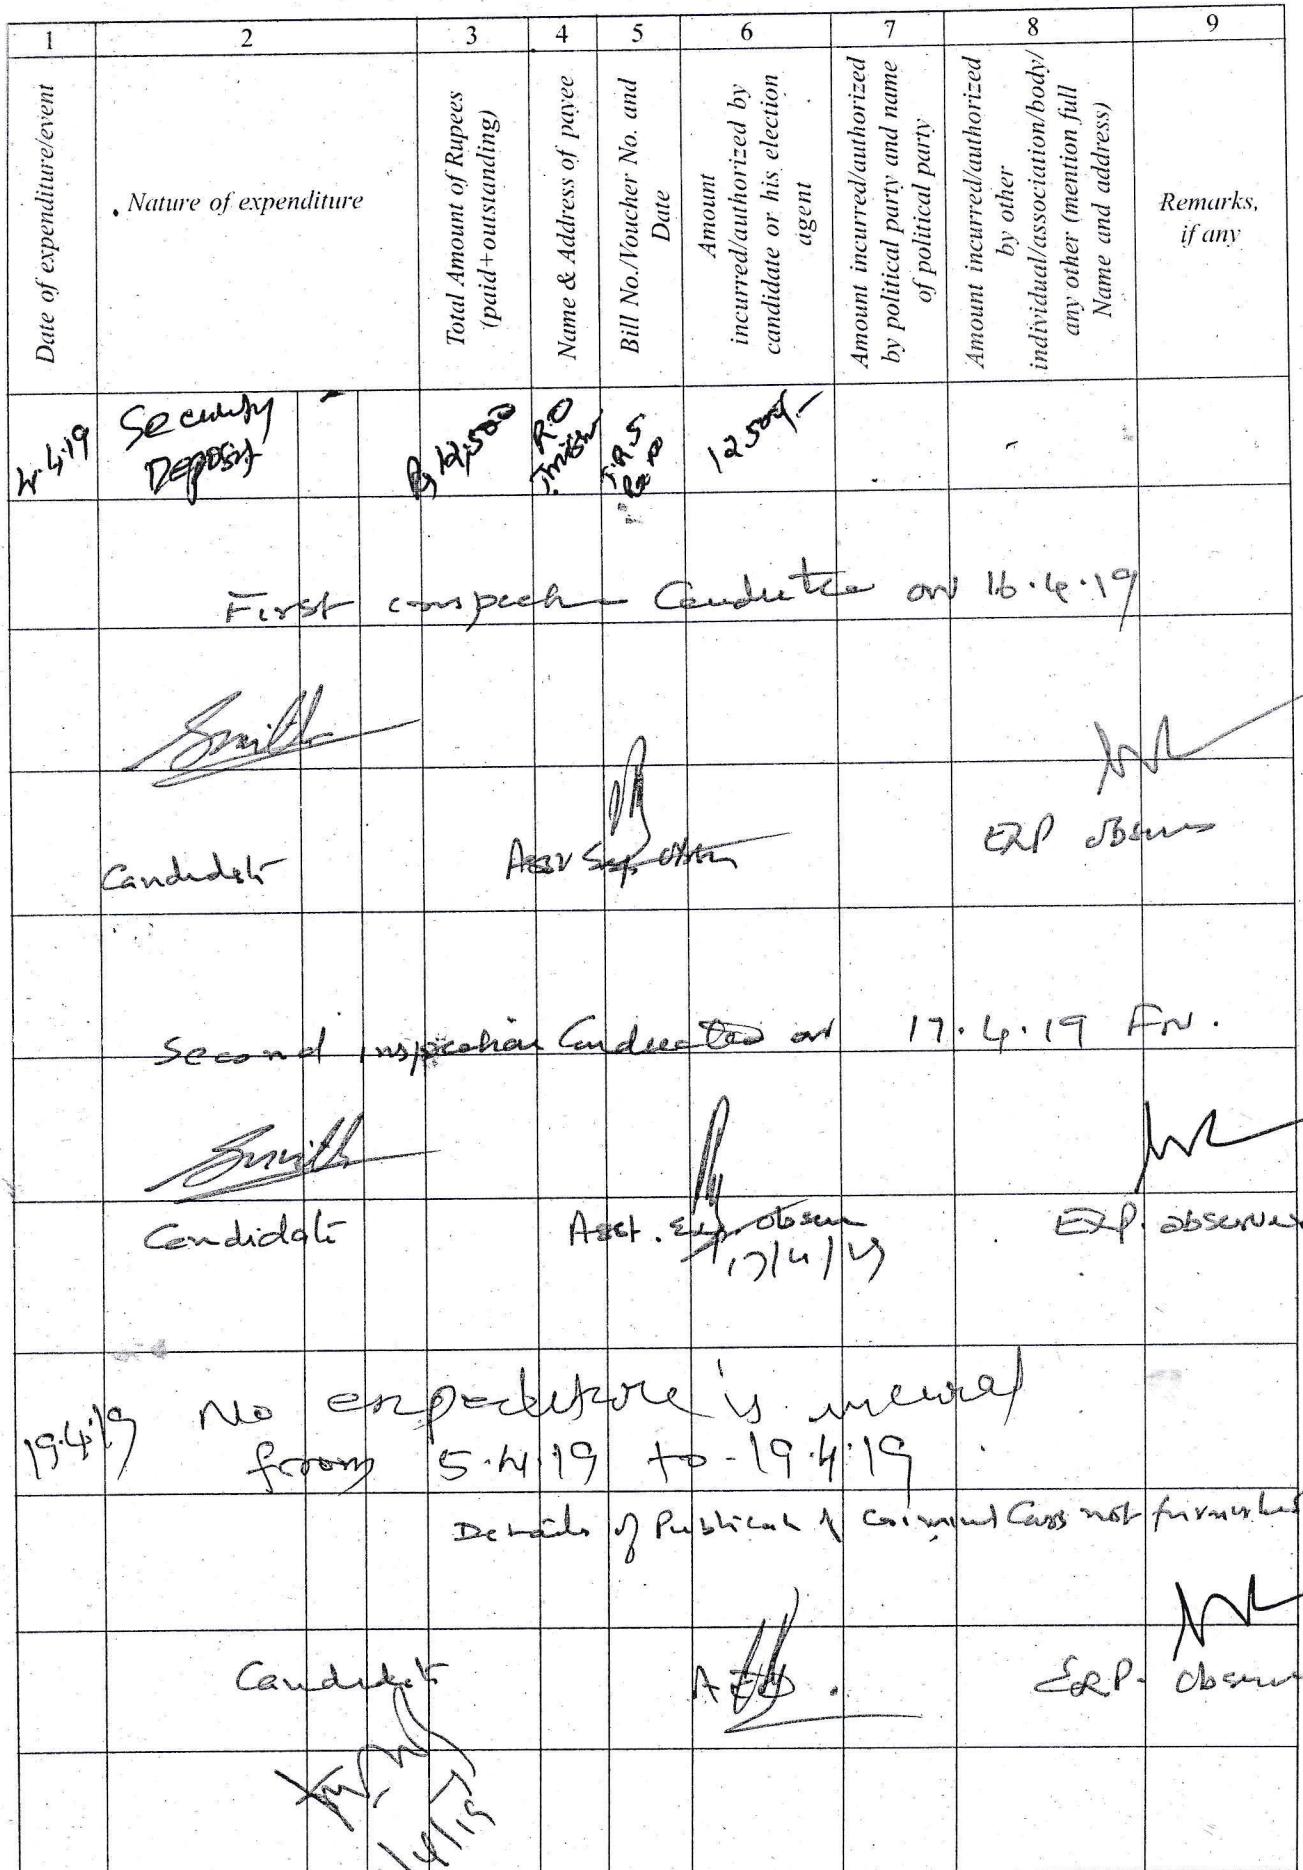 1 2 3 4 5 6 7 8 9
Date of expenditure/event
Nature of expenditure
Total Amount of Rupees
(paid+outstanding)
Name & Address of payee
Bill No./Voucher No. and
Date
Amount
incurred/authorized by
candidate or his election
agent
Amount incurred/authorized
by political party and name
of political party
Amount incurred/authorized
by other
individual/association/body/
any other (mention full
Name and address)
Remarks,
if any
4.4.19
Security
Deposit
Rs 12,500
R.O
12500/-
First Conducted on 16.4.19
Candidate
Exp observer
Second inspection Conducted on 17.4.19 FN.
Candidate Asst. Exp. observer Exp. observer
17/4/19
19.4.19 No expenditure is incurred
from 5.4.19 to - 19.4.19
Details of Publication of Criminal Cases not furnished
Candidate AEO. Exp. Observer